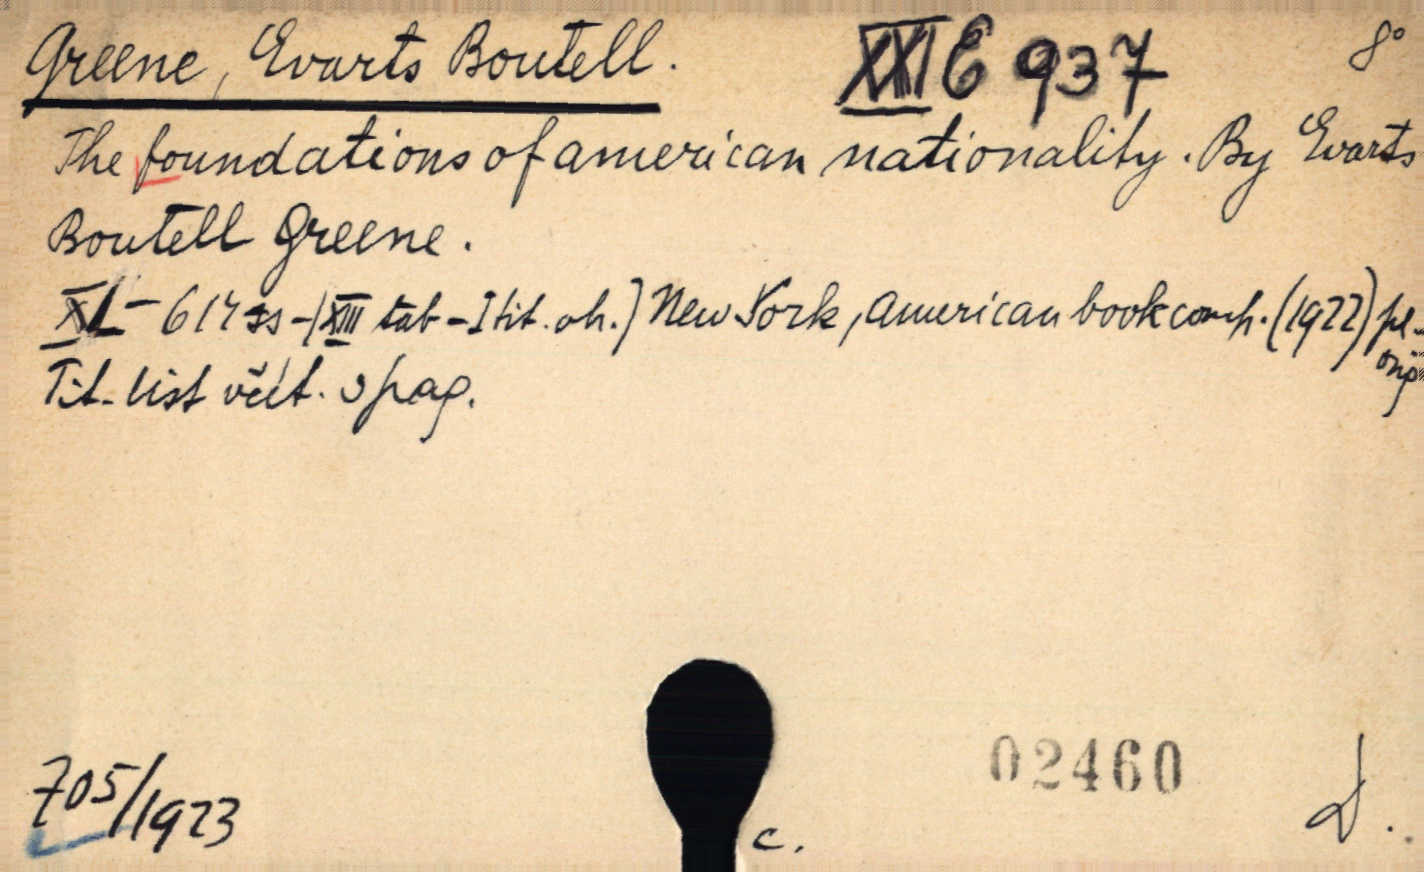 Greene, Evarts Boutell. XXI E 937 8°
The foundations of american nationality. By Evarts
Boutell Greene.
XL - 614 ss - (XIII tab - I tit. ob.) New York, American book comp. (1922) pl.
orig
Tit. list včet. v pag.
02460
705/1923
c.